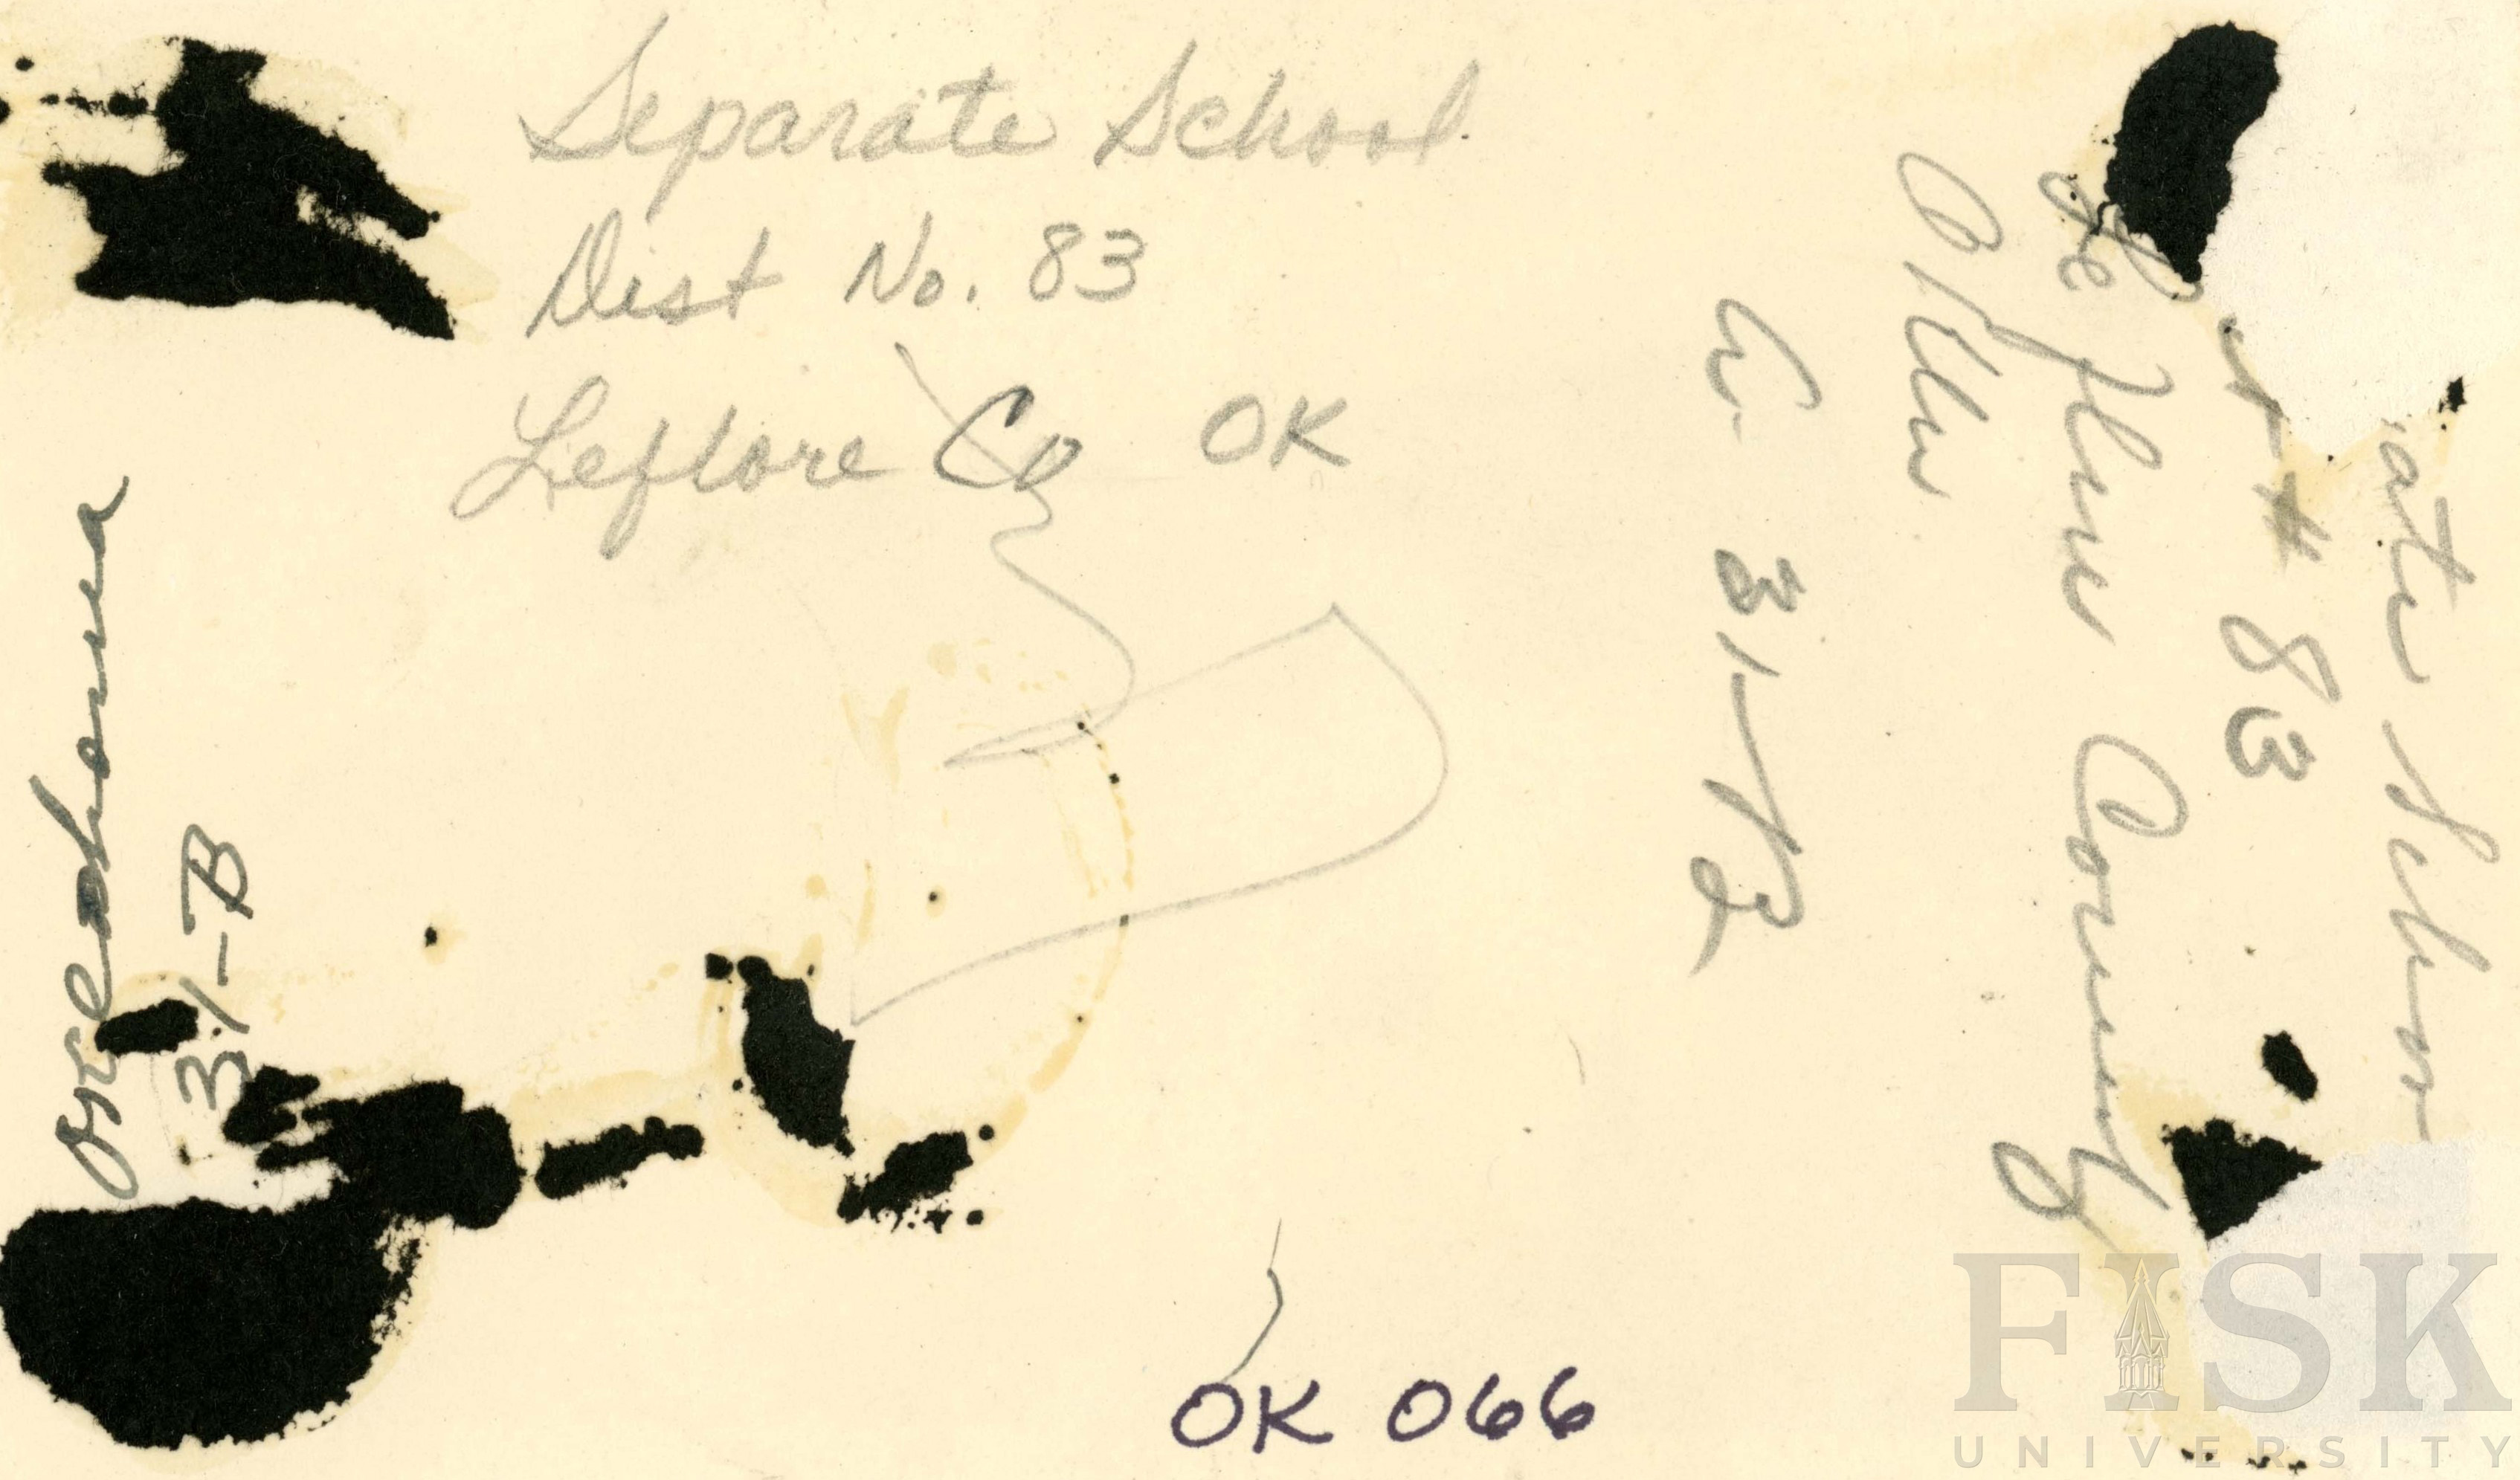 Separate School
Dist No. 83
Leflore Co OK
Oklahoma
31-B
ate School
# 83
Le Flore County
Okla
31-B
OK 066
FISK
UNIVERSITY